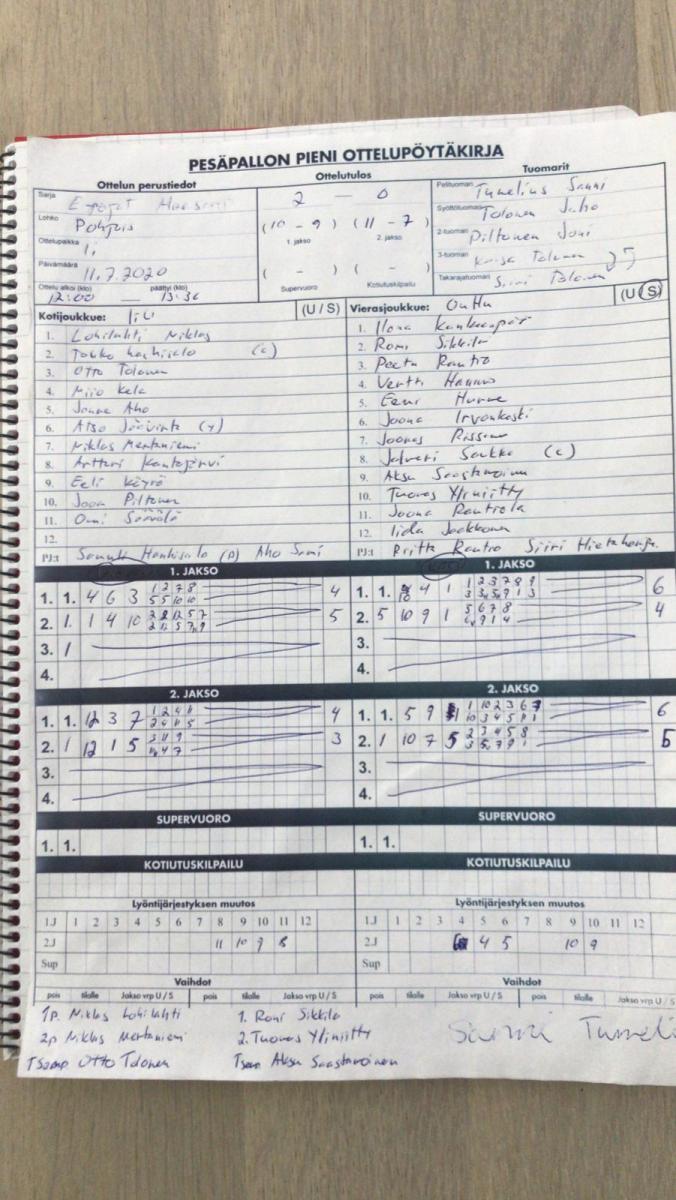 PESÄPALLON PIENI OTTELUPÖYTÄKIRJA
Ottelun perustiedot
Ottelutulos
Tuomarit
Sarja
Lohko Pohjois
Ottelupaikka Ii
Päivämäärä 11.7.2020
Ottelu alkoi (klo) päättyi (klo)
12:00 — 13:36
2 — 0
(10 - 9) (11 - 7)
1. jakso 2. jakso
( - ) ( - )
Supervuoro Kotiutuskilpailu
Pelituomari Tumelius Sanni
Syöttötuomari Tolonen Juho
2-tuomari Piltonen Joni
3-tuomari Tolonen
Takarajatuomari Siiri Tolonen
Kotijoukkue: IiU (U / S)
1. Lohilahti Niklas
2. (c)
3. Otto Tolonen
4. Miio Kela
5. Aho
6. Atso (v)
7. Niklas Mertaniemi
8. Artturi Kantojärvi
9. Eeli Käyrä
10. Joon Piltonen
11. Onni Säävälä
12.
PJ:t Hanhisalo (p) Aho Sami
Vierasjoukkue: OuHu (U / S)
1. Ilona
2. Roni Sikkilä
3. Peetu Rautio
4. Vertti Hannus
5. Eemi Hurme
6. Joona Irvankoski
7. Joonas Rissanen
8. Jalmari Saukko (c)
9. Aksu Saastamoinen
10. Tuomas Yliniitty
11. Joona Rautiola
12. Iida Jaakkonen
PJ:t Britta Rautio Siiri
1. JAKSO
1. 1. 4 6 3 1 2 7 8 4
5 5 10 10
2. 1. 1 4 10 5
3. 1
4.
1. JAKSO
1. 1. 4 1 1 2 3 7 8 9 6
2. 5 10 9 1 5 6 7 8 4
3.
4.
2. JAKSO
1. 1. 12 3 7 1 2 4 11 4
2 4 11 5
2. 1 12 1 5 3 11 9 3
3.
4.
2. JAKSO
1. 1. 5 9 1 10 2 3 6 7 6
10 3 4 5 11 1
2. 1 10 7 5 2 3 4 5 8 5
3 5 7 9 1
3.
4.
SUPERVUORO
1. 1.
SUPERVUORO
1. 1.
KOTIUTUSKILPAILU
KOTIUTUSKILPAILU
Lyöntijärjestyksen muutos
1.J 1 2 3 4 5 6 7 8 9 10 11 12
2.J 11 10 9 8
Sup
Lyöntijärjestyksen muutos
1.J 1 2 3 4 5 6 7 8 9 10 11 12
2.J 4 5 10 9
Sup
Vaihdot
pois tilalle Jakso vrp U / S pois tilalle Jakso vrp U / S
Vaihdot
pois tilalle Jakso vrp U / S pois tilalle Jakso vrp U / S
1p. Niklas Lohilahti
2p Niklas Mertaniemi
Tsemp Otto Tolonen
1. Roni Sikkilä
2. Tuomas Yliniitty
Tsem Aksu Saastamoinen
Sanni